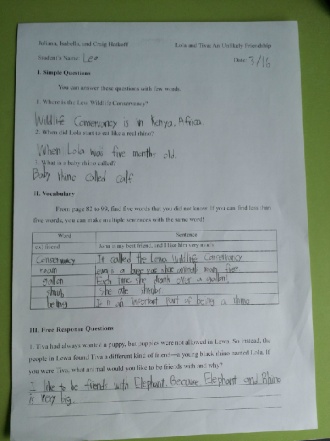 Juliana, Isabella, and Craig Hatkoff Lola and Tiva: An Unlikely Friendship
Student's Name: Leo Date: 3/16
I. Simple Questions
You can answer these questions with few words.
1. Where is the Lewa Wildlife Conservancy?
Wildlife Conservancy is in Kenya, Africa.
2. When did Lola start to act like a real rhino?
When Lola was five months old.
3. What is a baby rhino called?
Baby rhino called calf
II. Vocabulary
From page 82 to 99, find five words that you did not know. If you find less than
five words, you can make multiple sentences with the same word!
Word Sentence
best friend is my best friend, and I like him very much
Conservancy It called the Lewa Wildlife Conservancy
roam a large are animals roam free
gallon Each time she drank over a gallon!
shrub She ate shrubs.
being It is an important part of being a rhino.
III. Free Response Questions
1. Tiva had always wanted a puppy, but puppies were not allowed in Lewa. So instead, the
people in Lewa found Tiva a different kind of friend—a young black rhino named Lola. If
you were Tiva, what animal would you like to be friends with and why?
I like to be friends with Elephant. Because Elephant and Rhino
is very big.